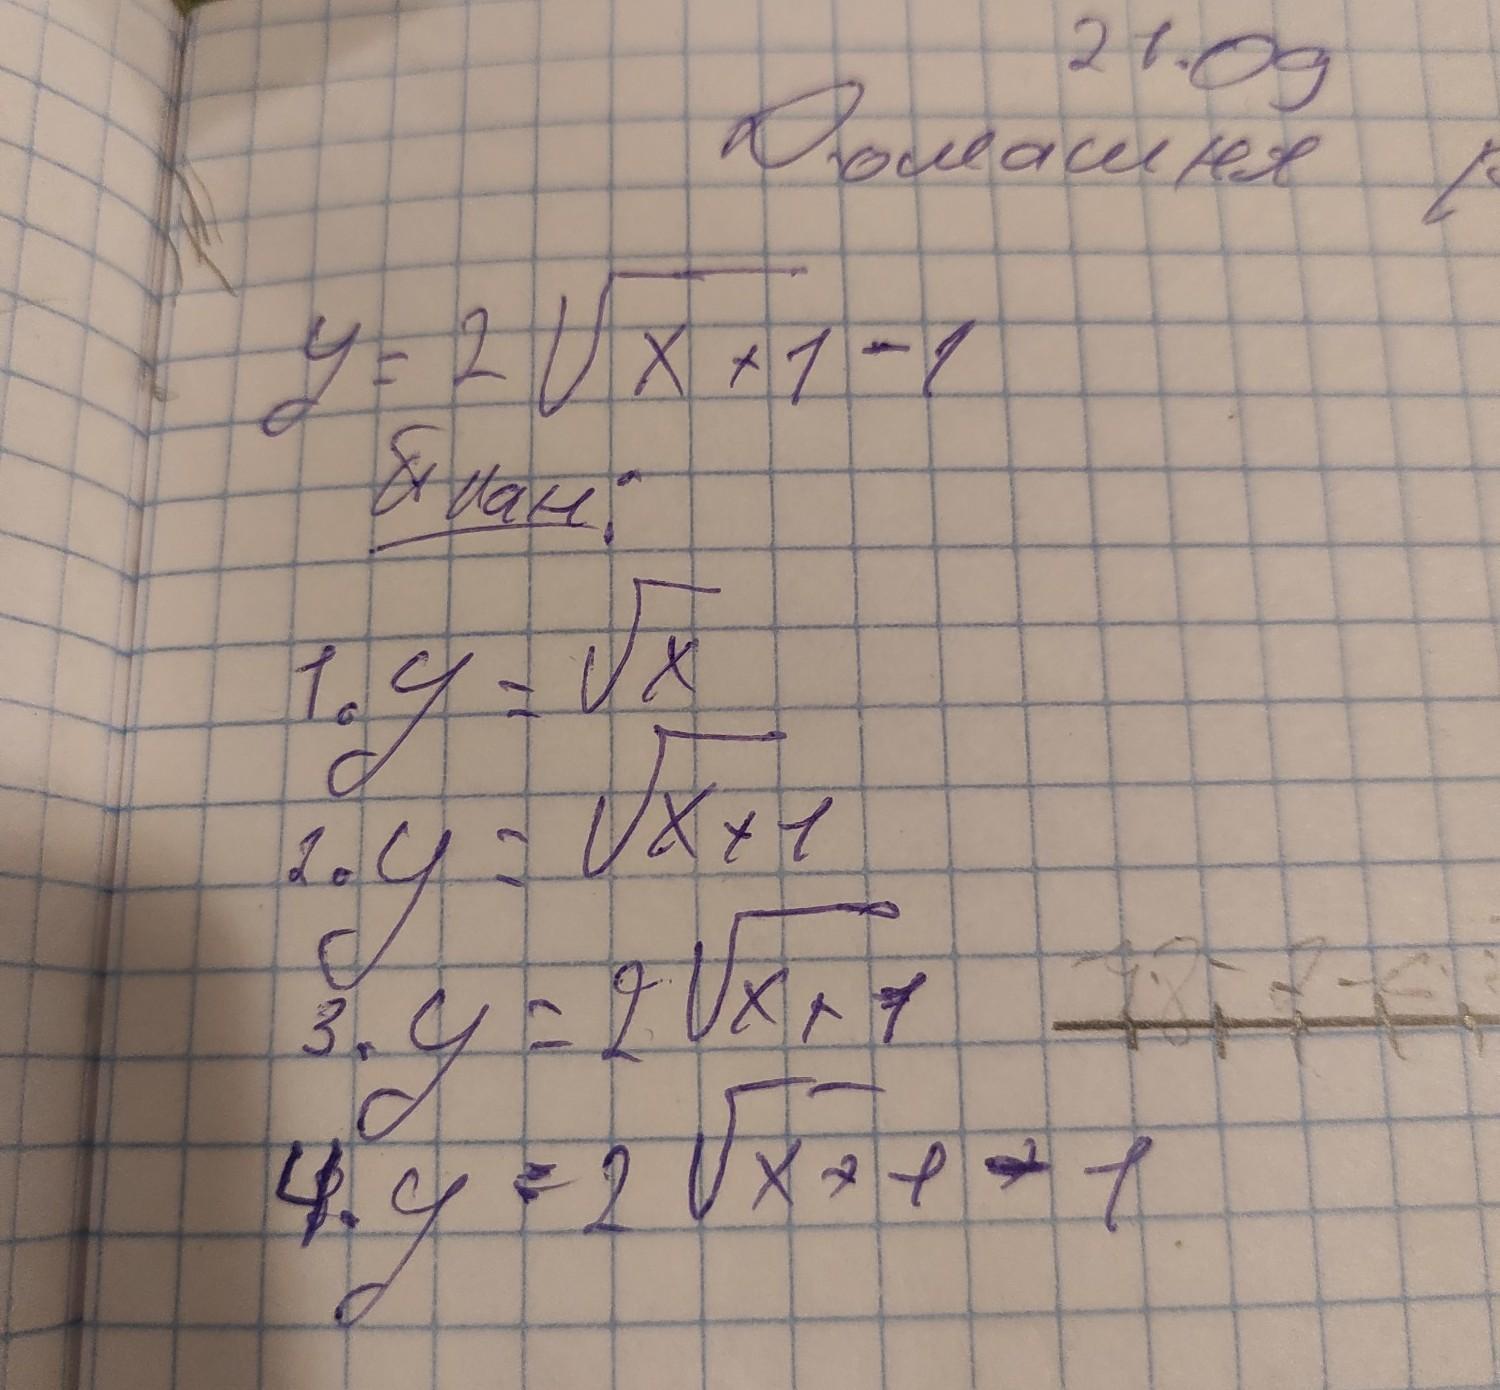 21.09
Домашня
y = 2√x+1 - 1
План:
1. y = √x
2. y = √x+1
3. y = 2√x+1
4. y = 2√x+1 - 1